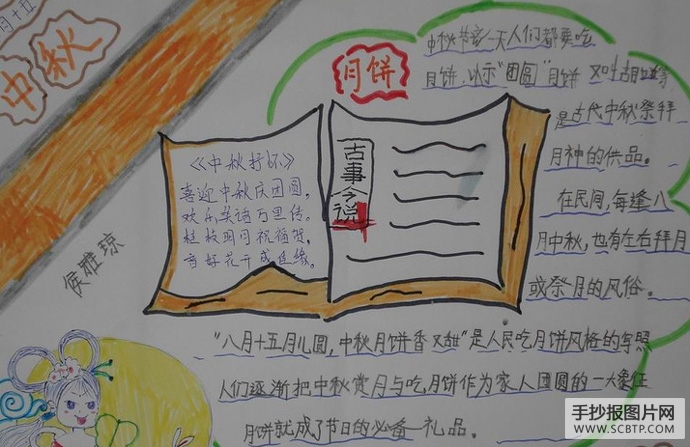 月十五
中秋
月饼
中秋节这一天人们都要吃
月饼,以示"团圆"月饼 又叫胡饼等
是古代中秋祭拜
月神的供品。
在民间,每逢八
月中秋,也有左右拜月
或祭月的风俗。
《中秋抒怀》
喜迎中秋庆团圆,
欢乐笑语万里传。
桂枝明月祝福贺,
育好花开成连缘。
古事今说
侯雅琼
"八月十五月儿圆,中秋月饼香又甜"是人民吃月饼风格的写照
人们逐渐把中秋赏月与吃月饼作为家人团圆的一大象征
月饼就成了节日的必备一礼品。
手抄报图片网
WWW.SCBTP.COM